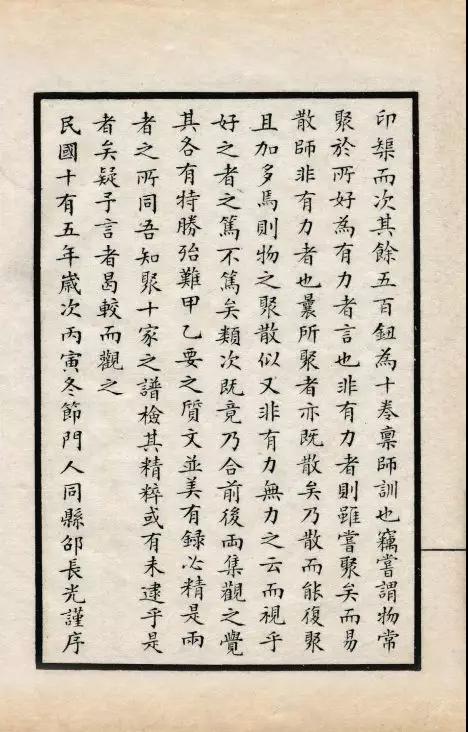 印槼而次其餘五百鈕為十卷稟師訓也竊嘗謂物常
聚於所好為有力者言也非有力者則雖嘗聚矣而易
散師非有力者也曩所聚者亦既散矣乃散而能復聚
且加多焉則物之聚散似又非有力無力之云而視乎
好之者之篤不篤矣類次既竟乃合前後兩集觀之覺
其各有特勝殆難甲乙要之質文並美有録必精是兩
者之所同吾知聚十家之譜檢其精粹或有未逮乎是
者矣疑予言者曷較而觀之
民國十有五年嵗次丙寅冬節門人同縣邵長光謹序